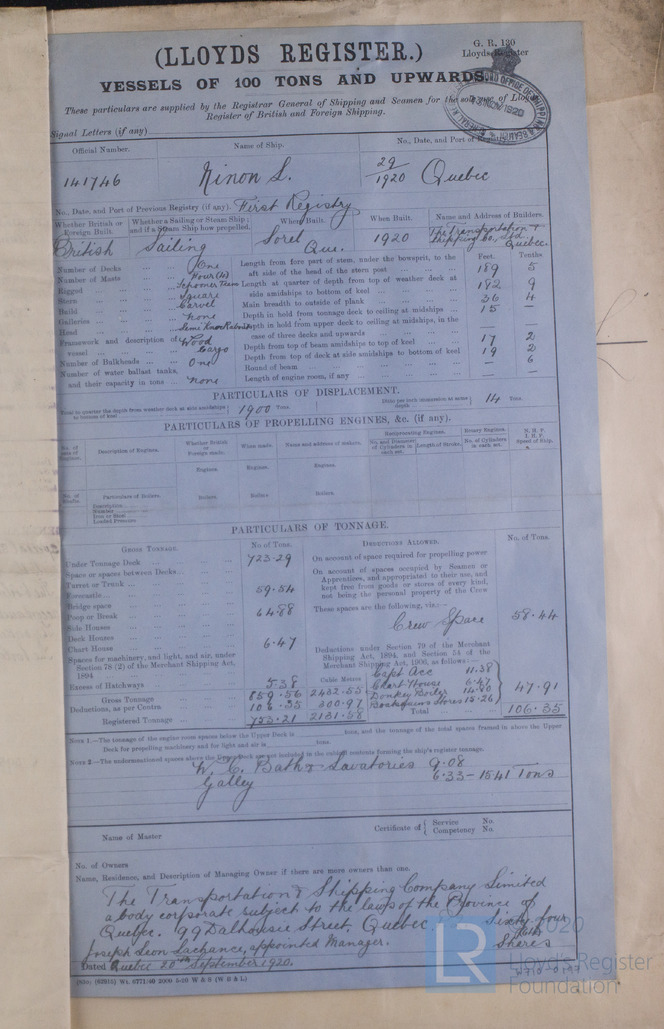 (LLOYDS REGISTER.)
G. R. 120
Lloyds Register
VESSELS OF 100 TONS AND UPWARDS.
These particulars are supplied by the Registrar General of Shipping and Seamen for the sole use of Lloyds
Register of British and Foreign Shipping.
Signal Letters (if any)
Official Number. Name of Ship. No., Date, and Port of Registry
141746 Ninon L. 29/1920 Quebec
No., Date, and Port of Previous Registry (if any). First Registry
Whether British or Foreign Built. Whether a Sailing or Steam Ship; and if a Steam Ship how propelled. When Built. When Built. Name and Address of Builders.
British Sailing Sorel Que. 1920 The Transportation & Shipping Co. Ltd. Quebec.
Feet. Tenths.
Number of Decks One
Number of Masts Four (4)
Rigged
Stern Square
Build Carvel
Galleries None
Head
Framework and description of vessel Wood Cargo
Number of Bulkheads One
Number of water ballast tanks, and their capacity in tons None
Length from fore part of stem, under the bowsprit, to the aft side of the head of the stern post 189 5
Length at quarter of depth from top of weather deck at side amidships to bottom of keel 182 9
Main breadth to outside of plank 36 4
Depth in hold from tonnage deck to ceiling at midships 15 —
Depth in hold from upper deck to ceiling at midships, in the case of three decks and upwards — —
Depth from top of beam amidships to top of keel 17 2
Depth from top of deck at side amidships to bottom of keel 19 2
Round of beam — 6
Length of engine room, if any — —
PARTICULARS OF DISPLACEMENT.
Total to quarter the depth from weather deck at side amidships to bottom of keel 1900 Tons. Ditto per inch immersion to same depth 14 Tons.
PARTICULARS OF PROPELLING ENGINES, &c. (if any).
No. of sets of Engines. Description of Engines. Whether British or Foreign made. When made. Name and address of makers. Reciprocating Engines. No. and Diameter of Cylinders in each set. Length of Stroke. Rotary Engines. No. of Cylinders in each set. N. H. P. I. H. P. Speed of Ship.
Engines. Engines. Engines.
Particulars of Boilers. Boilers Boilers Boilers
Description
Number
Iron or Steel
Loaded Pressure
PARTICULARS OF TONNAGE.
GROSS TONNAGE. No. of Tons. DEDUCTIONS ALLOWED. No. of Tons.
Under Tonnage Deck 723.29
Space or spaces between Decks
Turret or Trunk
Forecastle 59.54
Bridge space
Poop or Break 64.88
Side Houses
Deck Houses
Chart House 6.47
Spaces for machinery, and light, and air, under Section 78 (2) of the Merchant Shipping Act, 1894
Excess of Hatchways 5.38
Cubic Metres
Gross Tonnage 859.56 2432.55
Deductions, as per Contra 106.35 300.97
Registered Tonnage 753.21 2131.58
On account of space required for propelling power
On account of spaces occupied by Seamen or Apprentices, and appropriated to their use, and kept free from goods or stores of every kind, not being the personal property of the Crew
These spaces are the following, viz.:—
Crew Space 58.44
Deductions under Section 79 of the Merchant Shipping Act, 1894, and Section 54 of the Merchant Shipping Act, 1906, as follows:—
Capt Acc 11.38
Chart House 6.47
Donkey Boiler 14.80
Boatswains Stores 15.26
47.91
Total 106.35
NOTE 1.—The tonnage of the engine room spaces below the Upper Deck is tons, and the tonnage of the total spaces framed in above the Upper
Deck for propelling machinery and for light and air is tons.
NOTE 2.—The undermentioned spaces above the Upper Deck are not included in the cubical contents forming the ship's register tonnage.
W. C. Bath & Lavatories 9.08
Galley 6.33 — 15.41 Tons
Name of Master Certificate of { Service No.
Competency No.
No. of Owners
Name, Residence, and Description of Managing Owner if there are more owners than one.
The Transportation & Shipping Company Limited
a body corporate subject to the laws of the Province of
Quebec. 99 Dalhousie Street, Quebec. Sixty four
Joseph Leon Lachance, appointed Manager. Shares
Dated Quebec 20th September 1920.
2020
LR
Lloyd's Register
Foundation